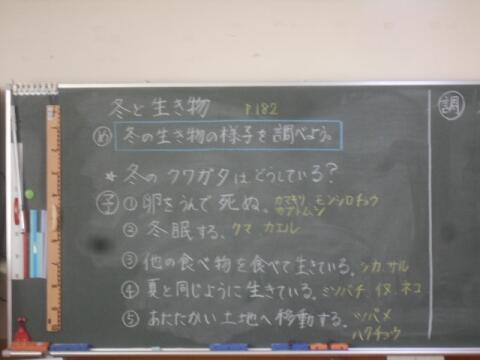 冬と生き物 P.182
調
め 冬の生き物の様子を調べよう。
★冬のクワガタはどうしている？
予 ①卵をうんで死ぬ。カマキリ モンシロチョウ
カブトムシ
②冬眠する。クマ カエル
③他の食べ物を食べて生きている。シカ、サル
④夏と同じように生きている。ミツバチ イヌ ネコ
⑤あたたかい土地へ移動する。ツバメ
ハクチョウ